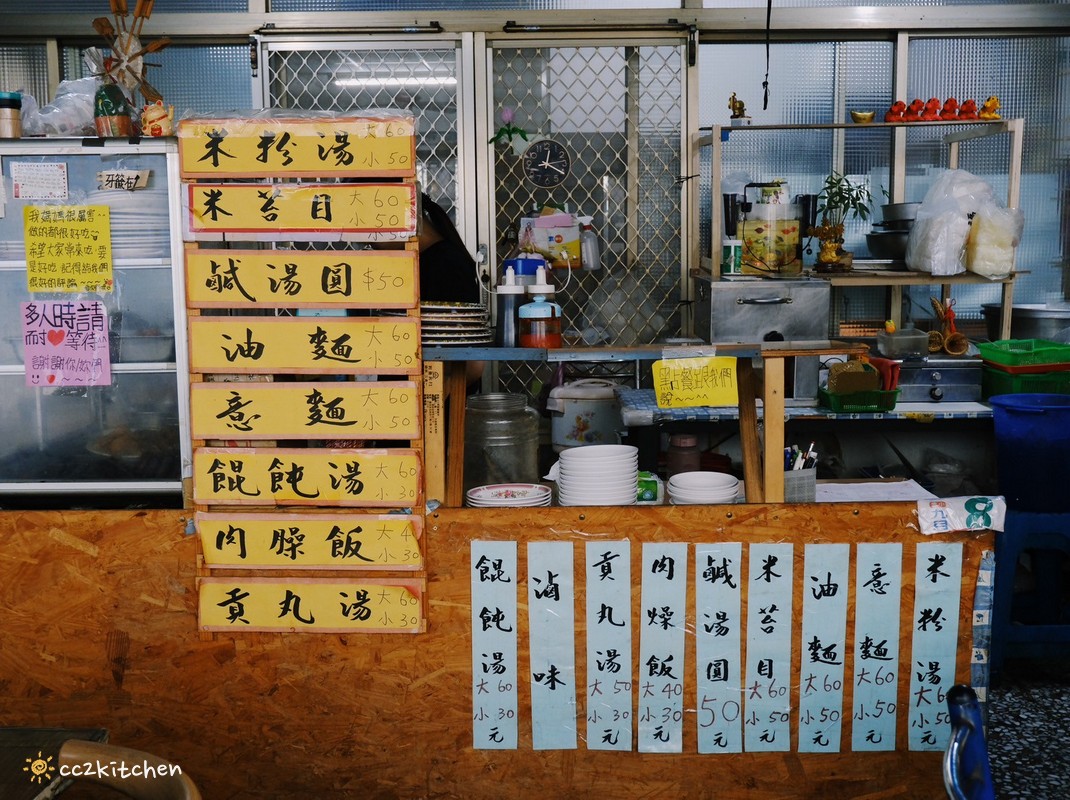 米粉湯 大60 小50
米苔目 大60 小50
鹹湯圓 $50
油麵 大60 小50
意麵 大60 小50
餛飩湯 大60 小30
肉臊飯 大4 小30
貢丸湯 大60 小30
牙籤在
我媽媽很厲害
做的都很好吃
希望大家來吃 要
是好吃 記得給我們
很好的評論
多人時請
耐♥等待
謝謝你/妳們
點餐跟我們
說~~^^
餛飩湯 大60 小30元
滷味
貢丸湯 大50 小30元
肉燥飯 大40 小30元
鹹湯圓 50元
米苔目 大60 小50元
油麵 大60 小50元
意麵 大60 小50元
米粉湯 大60 小50元
cc2kitchen